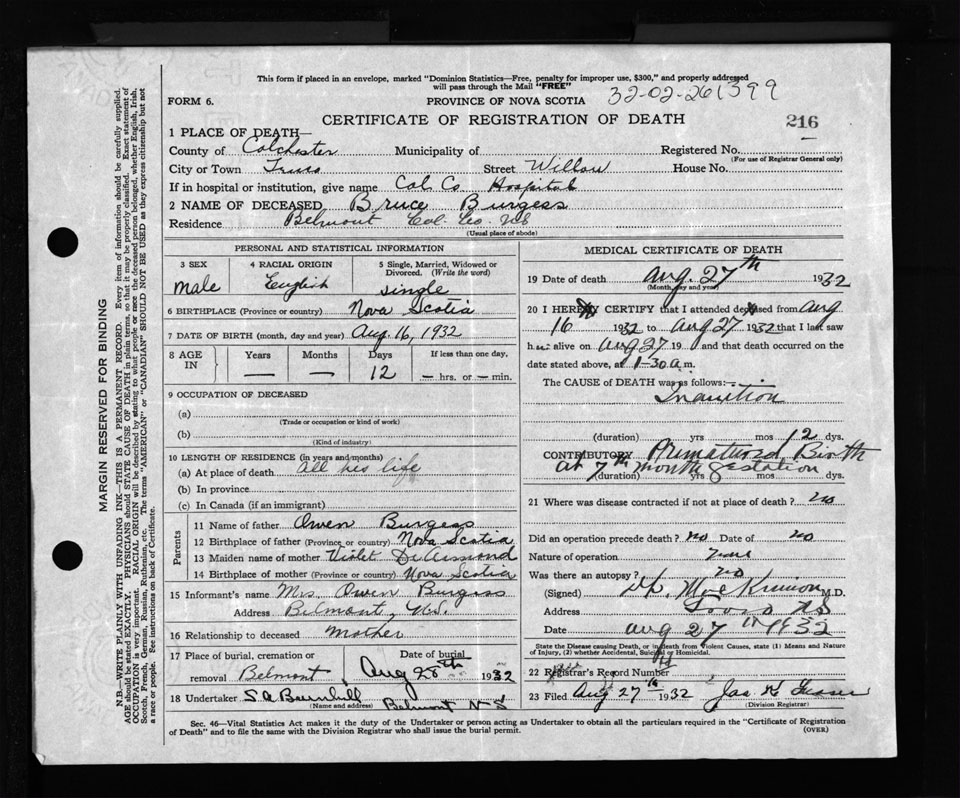 This form if placed in an envelope, marked "Dominion Statistics—Free, penalty for improper use, $300," and properly addressed
will pass through the Mail "FREE"
FORM 6.
PROVINCE OF NOVA SCOTIA
32-02-261399
CERTIFICATE OF REGISTRATION OF DEATH
216
1 PLACE OF DEATH—
County of Colchester Municipality of Registered No.
(For use of Registrar General only)
City or Town Truro Street Willow House No.
If in hospital or institution, give name Col. Co. Hospital
2 NAME OF DECEASED Bruce Burgess
Residence Belmont Col. Co. NS
(Usual place of abode)
PERSONAL AND STATISTICAL INFORMATION
3 SEX 4 RACIAL ORIGIN 5 Single, Married, Widowed or
Divorced. (Write the word)
male English single
6 BIRTHPLACE (Province or country) Nova Scotia
7 DATE OF BIRTH (month, day and year) Aug 16, 1932
8 AGE IN Years Months Days If less than one day,
— — 12 — hrs. or — min.
9 OCCUPATION OF DECEASED
(a)
(Trade or occupation or kind of work)
(b)
(Kind of industry)
10 LENGTH OF RESIDENCE (in years and months)
(a) At place of death all his life
(b) In province
(c) In Canada (if an immigrant)
Parents
11 Name of father Owen Burgess
12 Birthplace of father (Province or country) Nova Scotia
13 Maiden name of mother Violet DeArmond
14 Birthplace of mother (Province or country) Nova Scotia
15 Informant's name Mrs. Owen Burgess
Address Belmont, NS.
16 Relationship to deceased mother
17 Place of burial, cremation or Date of burial
removal Belmont Aug 28th 1932
18 Undertaker S A
(Name and address) Belmont N S
MEDICAL CERTIFICATE OF DEATH
19 Date of death Aug. 27th 1932
(Month, day and year)
20 I HEREBY CERTIFY that I attended deceased from Aug
16 1932 to Aug 27 1932 that I last saw
h alive on Aug 27 19 and that death occurred on
date stated above, at 1.30 a.m.
The CAUSE of DEATH was as follows:—
Inanition
(duration) yrs mos 12 dys.
CONTRIBUTORY Birth
at 7th month gestation
(duration) yrs mos dys.
21 Where was disease contracted if not at place of death? no
Did an operation precede death? no Date of no
Nature of operation
Was there an autopsy? no
(Signed) M.D.
Address NS
Date Aug 27th 1932
State the Disease causing Death, or in death from Violent Causes, state (1) Means and Nature
of Injury, (2) whether Accidental, Suicidal or Homicidal.
22 Registrar's Record Number
23 Filed Aug 27th 1932 Jas
(Division Registrar)
Sec. 46—Vital Statistics Act makes it the duty of the Undertaker or person acting as Undertaker to obtain all the particulars required in the "Certificate of Registration
of Death" and to file the same with the Division Registrar who shall issue the burial permit.
(OVER)
MARGIN RESERVED FOR BINDING
N.B.—WRITE PLAINLY WITH UNFADING INK—THIS IS A PERMANENT RECORD. Every item of information should be carefully supplied.
AGE should be stated EXACTLY. PHYSICIANS should STATE CAUSE OF DEATH in plain terms, so that it may be properly classified. Exact statement of
OCCUPATION is very important. RACIAL ORIGIN will be described by stating to what people or race the deceased person belonged, whether English, Irish,
Scotch, French, German, Russian, Ruthenian, etc. The terms "AMERICAN" or "CANADIAN" SHOULD NOT BE USED as they express citizenship but not
a race or people. See instructions on back of Certificate.